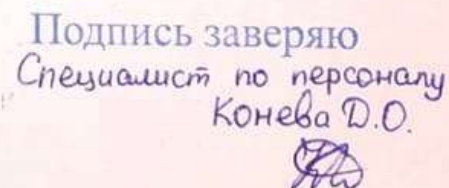 Подпись заверяю
Специалист по персоналу
Конева Д.О.